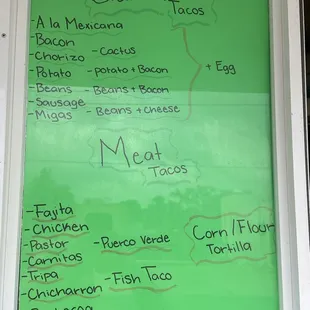 Tacos
-A la Mexicana
-Bacon
-Chorizo -Cactus
-Potato -potato + Bacon
-Beans -Beans + Bacon
-Sausage
-Migas -Beans + cheese
+ Egg
Meat
Tacos
-Fajita
-Chicken
-Pastor -Puerco Verde
-Carnitas
-Tripa -Fish Taco
-Chicharron
Corn/Flour
Tortilla